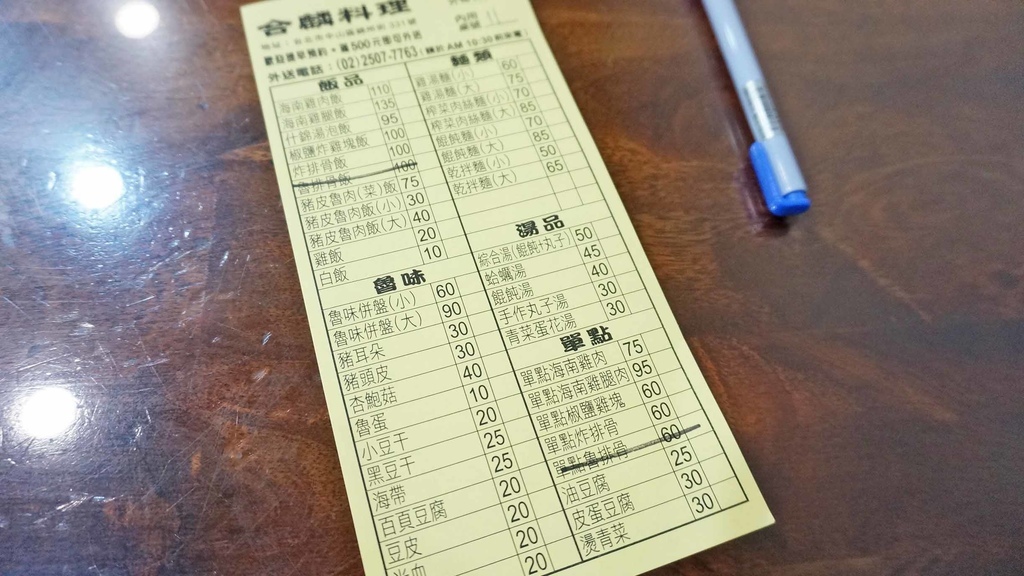 合麟料理
外送電話:(02)2507-7763
飯品
海南雞肉飯 110
海南雞腿飯 135
什錦湯泡飯 95
椒鹽炸雞塊飯 100
炸排骨飯 100
魯排骨飯 100
豬皮魯肉(菜)飯 75
豬皮魯肉飯(小) 30
豬皮魯肉飯(大) 40
雞飯 20
白飯 10
魯味
魯味併盤(小) 60
魯味併盤(大) 90
豬耳朵 30
豬頭皮 30
杏鮑菇 40
魯蛋 10
小豆干 20
黑豆干 25
海帶 25
百頁豆腐 20
豆皮 20
米血 20
20
麵類
雞湯麵(小) 60
雞湯麵(大) 75
榨菜肉絲麵(小) 70
榨菜肉絲麵(大) 85
餛飩麵(小) 70
餛飩麵(大) 85
乾拌麵(小) 50
乾拌麵(大) 65
湯品
綜合湯(餛飩+丸子) 50
蛤蠣湯 45
餛飩湯 40
手作丸子湯 30
青菜蛋花湯 30
單點
單點海南雞肉 75
單點海南雞腿肉 95
單點椒鹽雞塊 60
單點炸排骨 60
單點魯排骨 60
油豆腐 25
皮蛋豆腐 30
燙青菜 30